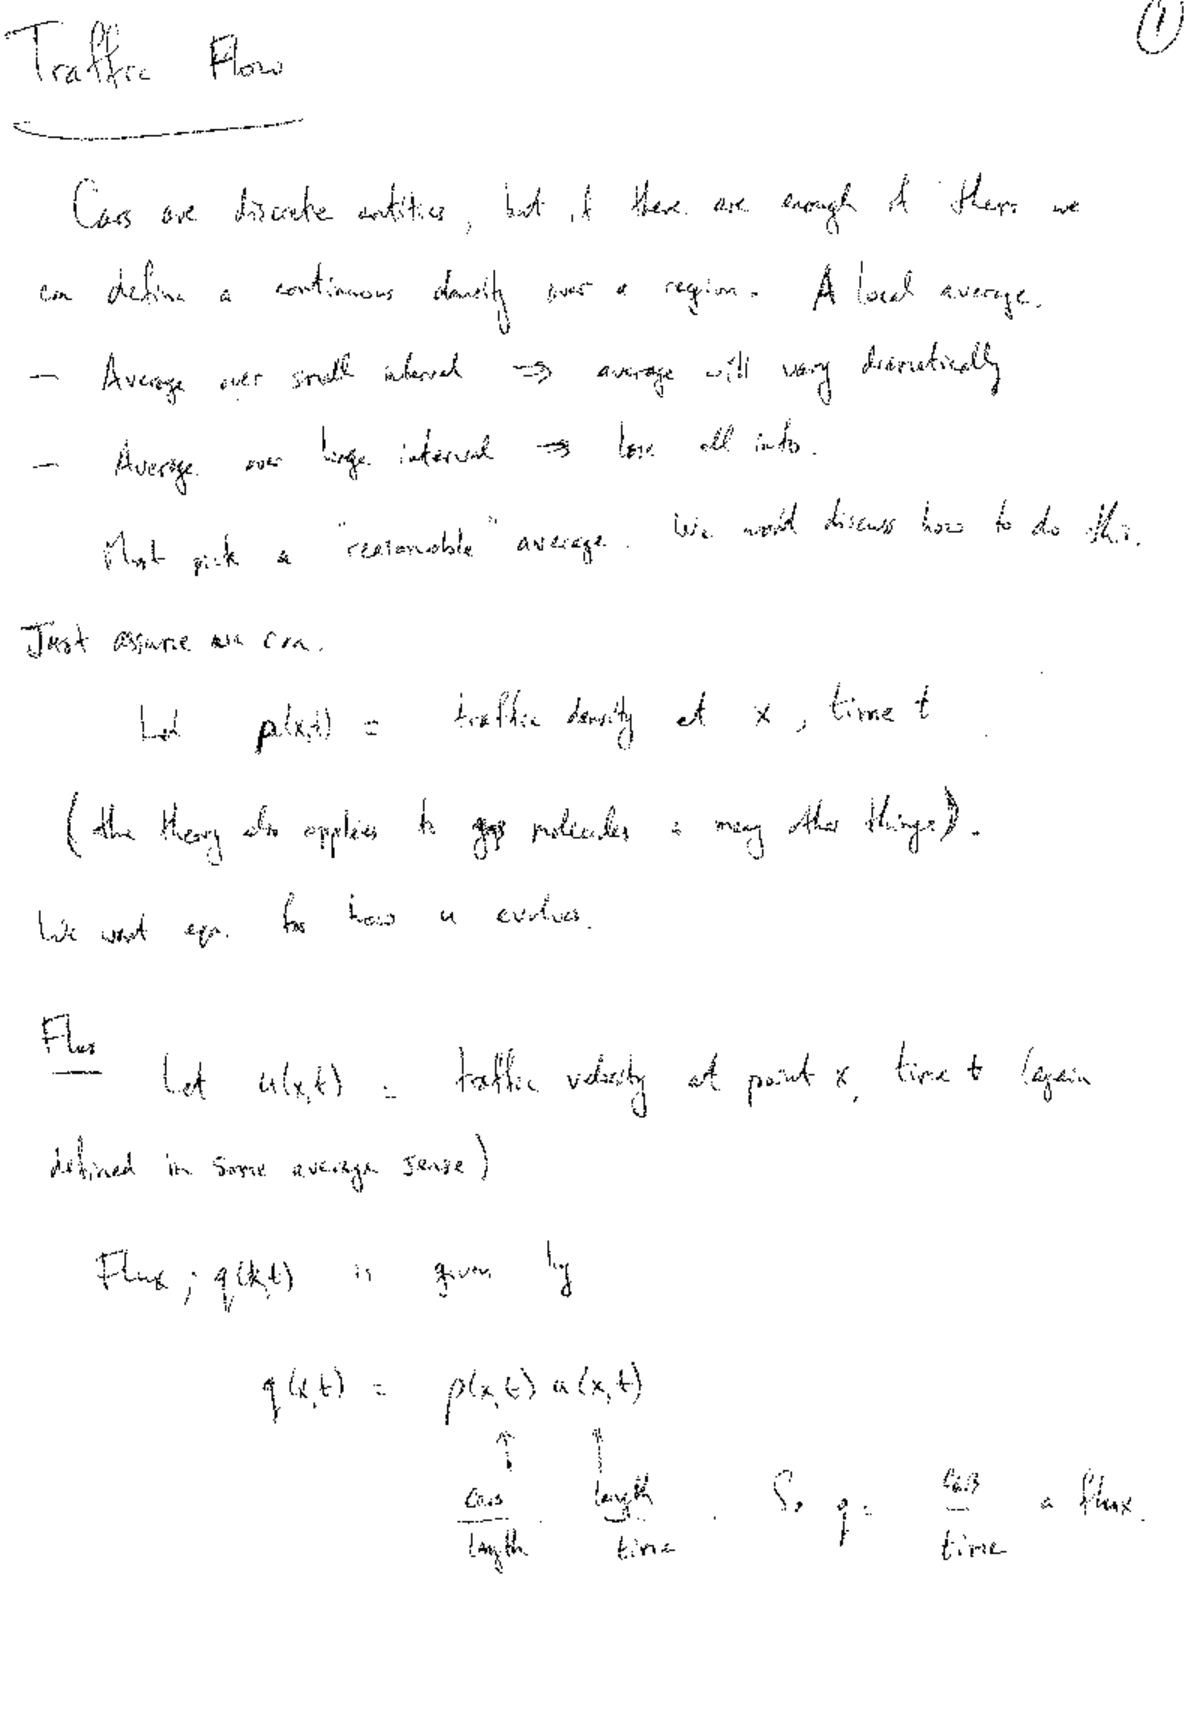 ①
Traffic Flow
Cars are discrete entities, but if there are enough of them we
can define a continuous density over a region. A local average.
— Average over small interval ⇒ average will vary dramatically
— Average over large interval ⇒ lose all info.
Must pick a "reasonable" average. We won't discuss how to do this.
Just assume we can.
Let ρ(x,t) = traffic density at x, time t
(the theory also applies to gas molecules & many other things).
We want eqn. for how u evolves.
Flux
Let u(x,t) = traffic velocity at point x, time t (again
defined in some average sense)
Flux, q(x,t) is given by
q(x,t) = ρ(x,t) u(x,t)
↑ ↑
cars length So q = cars a flux.
length time . time